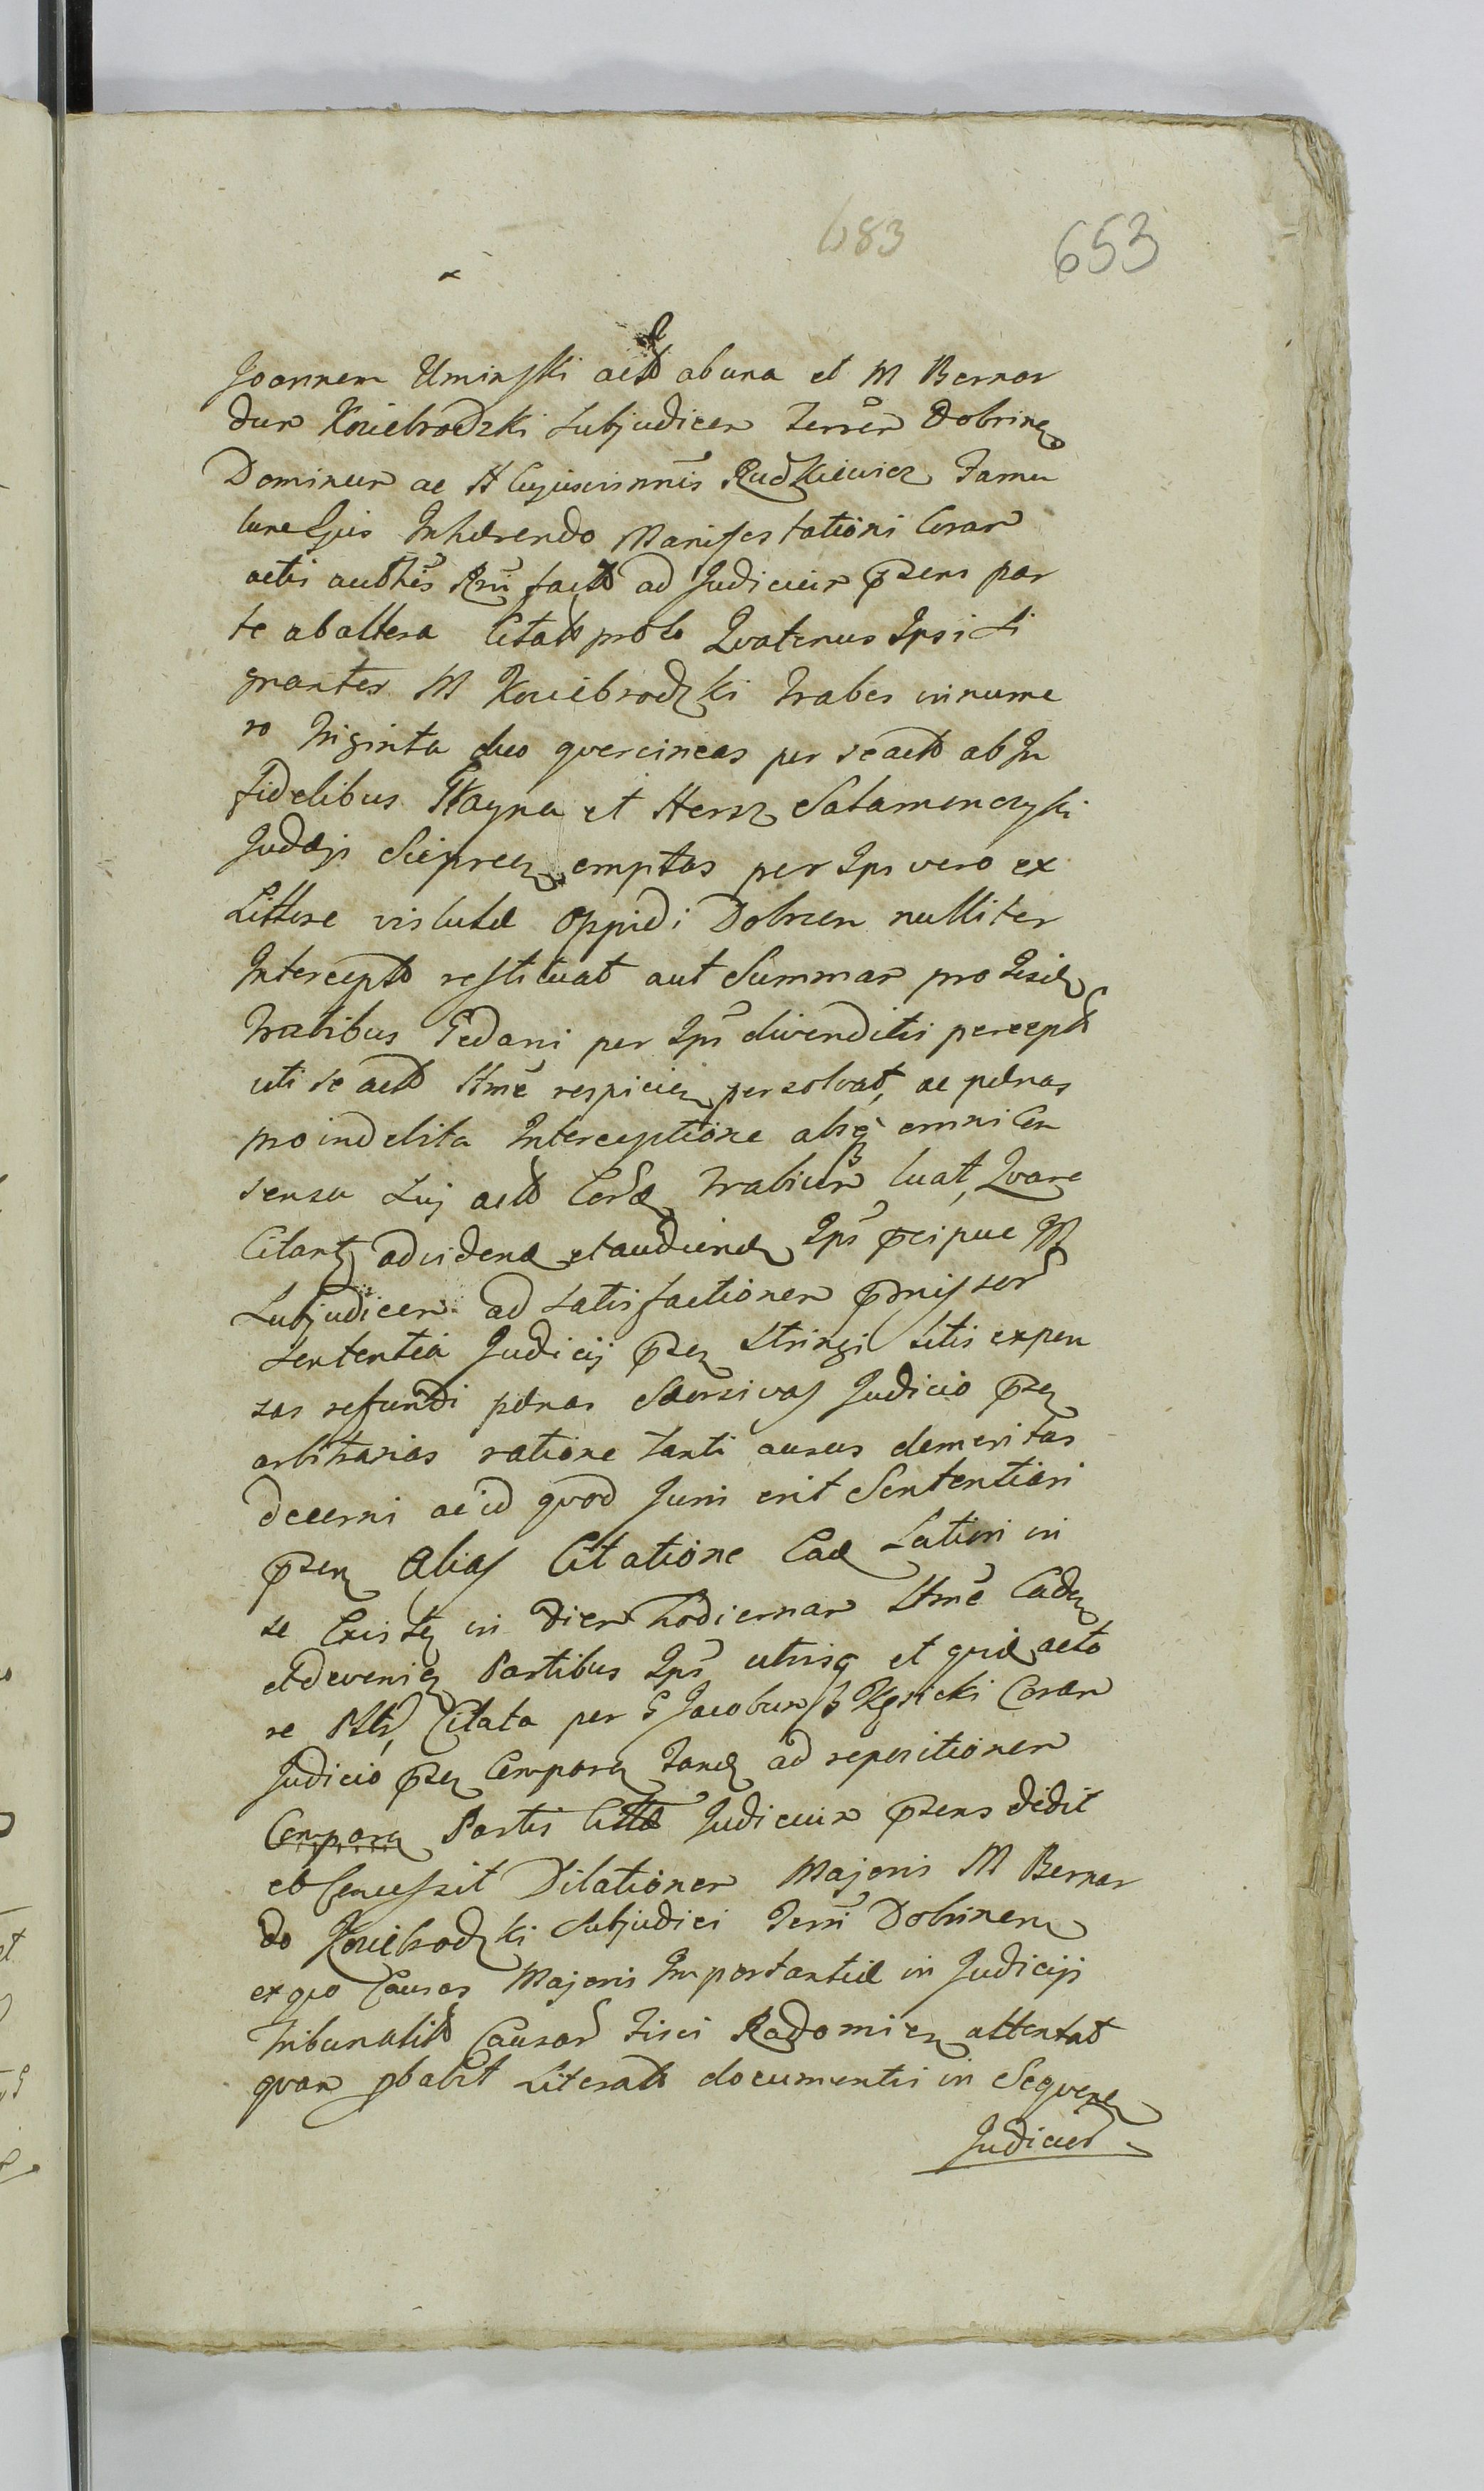 683 653
Joannem Uminski actē ab una et M Bernar
dum Kosiebrodzki Subjudicem Terrēm Dobrinen
Dominum ac H Cujusvisnnīs Rudkiewicz Famu
lum Ejus Inhærendo Manifestationi Coram
actis authēs factæ ad Judicium pſens par
te ab altera Citatæ Quatenus Ipsi Si
gnanter M Kosiebrodzki trabes in nume
ro triginta duo quercineas per se actō ab In
fidelibus et Hersz Salamonczyki
Judæis Sieprcen emptas per Ips vero ex
Littore vistulæ Oppidi Dobrzen nulliter
Intercept restituat aut Summam pro iisd
trabibus Gedani per Ips divenditis percept
uti se act ltmē respicien persolvat, ac pænas
pro indebita Interceptione absq omni Con
sensu Sui act trabium luat, Quare
Citant ad vidend et audiend Ips pcipue M
Subjudicem ad satisfactionem pmissor
Sententia Judicij psen Stringi litis expen
sas refundi pænas Judicio psen
arbitrarias ratione tanti ausus demeritas
decerni ac id quod Juris erit Sententiari
psen Alias Citatione Ead Latiori in
se Existen in diem hodiernam ltmē Caden
et devenien Partibus Ips utrisq et quid acto
re Citata per G Jacobum Coram
Judicio psen Comparen Tand ad repositionem
Comparen Partis Citatæ Judicium psens dedit
et Concessit Dilationem Majoris M Bernar
do Kosiebrodzki Subjudici Terrī Dobrinen
ex quo Causas Majoris Importantiæ in Judicijs
Tribunalit Causar Fisci Radomien attentat
quam pbabit Literat documentis in Sequen
Judicior